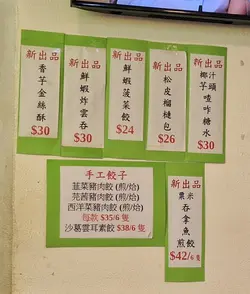 新出品
香芋金絲酥
$30
新出品
鮮蝦炸雲吞
$30
新出品
鮮蝦菠菜餃
$24
新出品
松皮榴槤包
$26
新出品
椰汁芋頭喳咋糖水
$30
手工餃子
韮菜豬肉餃 (煎/烚)
芫茜豬肉餃 (煎/烚)
西洋菜豬肉餃 (煎/烚)
每款 $35/6 隻
沙葛雲耳素餃 $38/6 隻
新出品
粟米吞拿魚煎餃
$42/6 隻